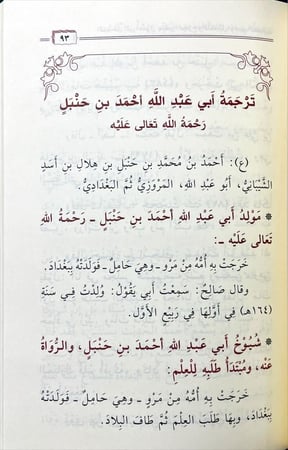 ٩٣
تَرْجَمَةُ أَبِي عَبْدِ اللَّهِ أَحْمَدَ بنِ حَنْبَلٍ
رَحْمَةُ اللَّهِ تَعَالَى عَلَيْه
(ع): أَحْمَدُ بنُ مُحَمَّدِ بنِ حَنْبَلِ بنِ هِلَالِ بنِ أَسَدٍ
الشَّيْبَانِيُّ، أَبُو عَبدِ اللهِ، المَرْوَزِيُّ ثُمَّ البَغْدَادِيُّ.
* مَوْلِدُ أَبي عَبدِ اللهِ أَحْمَدَ بنِ حَنْبَلٍ ـ رَحْمَةُ اللهِ
تَعَالَى عَلَيْه ـ:
خَرَجَتْ بِهِ أُمُّهُ مِنْ مَرْوَ ـ وهِيَ حَامِلٌ ـ فَوَلَدَتْهُ بِبَغْدَادَ.
وقال صَالِحٌ: سَمِعْتُ أَبي يَقُولُ: وُلِدْتُ فِي سَنَةِ
(١٦٤هـ) فِي أَوَّلِهَا فِي رَبِيعٍ الأَوَّلِ.
* شُيُوخُ أَبي عَبدِ اللهِ أَحْمَدَ بنِ حَنْبَلٍ، والرُّوَاةُ
عَنْه، ومُبْتَدَأُ طَلَبِهِ لِلْعِلْمِ:
خَرَجَتْ بِهِ أُمُّهُ مِنْ مَرْوَ ـ وهِيَ حَامِلٌ ـ فَوَلَدَتْهُ
بِبَغْدَادَ، وبِهَا طَلَبَ العِلْمَ ثُمَّ طَافَ البِلَادَ.